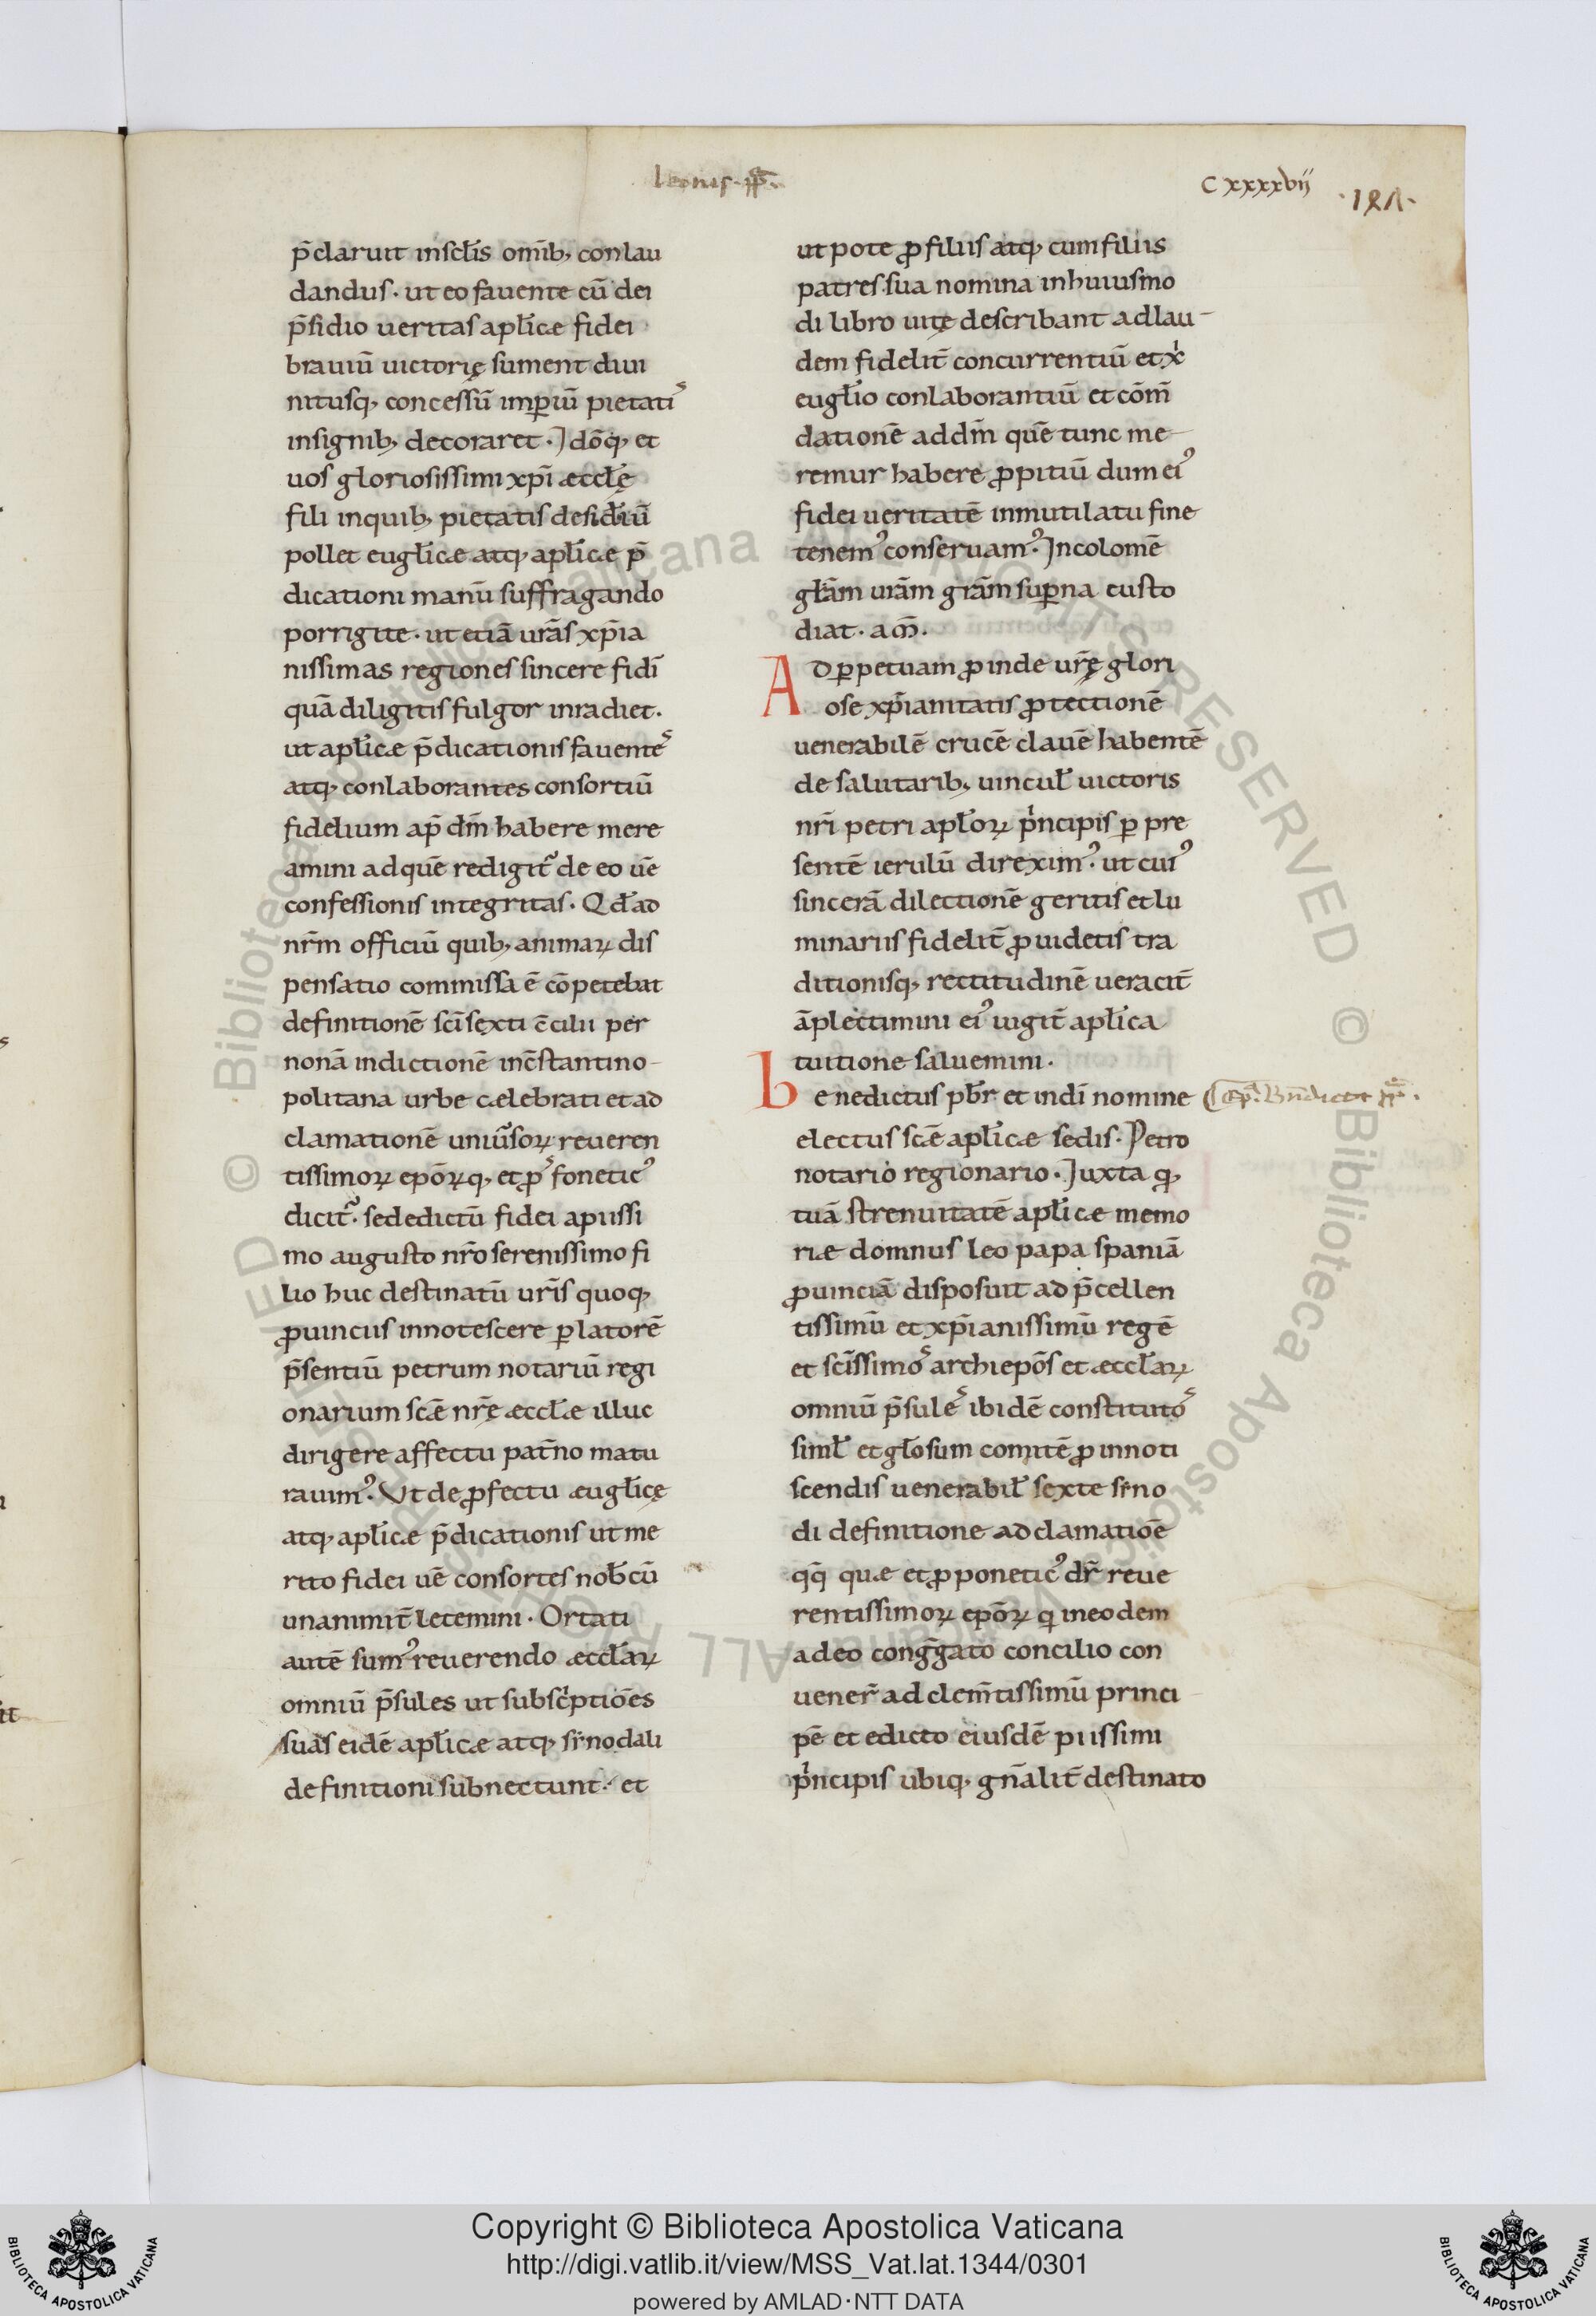 leonis · pp̄ ·
cxxxxvij
p̄claruit insclīs omīb; conlau
dandus · ut eo fauente cū dei
p̄sidio ueritas apłicæ fidei
brauiū uictorię sument diui
nitusq; concessū imꝑiū pietatis
insignib; decoraret · Idōq; et
uos gloriosissimi xp̄i æccłę
fili inquib; pietatis desid̄iū
pollet eugłicæ atq; apłicæ p̄
dicationi manū suffragando
porrigite · ut etiā urās xp̄ia
nissimas regiones sincere fidī
quā diligitis fulgor inradiet ·
ut apłicæ p̄dicationis fauentes
atq; conlaborantes consortiū
fidelium ap̄ dm̄ habere mere
amini adquē redigit᷑ de eo uē
confessionis integritas · Qđ ad
nr̄m officiū quib; animaꝝ dis
pensatio commissa ē cōpetebat
definitionē scī sexti c̄cilii per
nonā indictionē inc̄stantino
politana urbe cælebrati et ad
clamationē uniūsoꝝ reueren
tissimoꝝ epōꝝq; et ꝓsfoneticꝰ
dicit᷑ · sed edictū fidei apiissi
mo augusto nr̄o serenissimo fi
lio huc destinatū urīs quoq;
ꝓuinciis innotescere ꝑ latorē
p̄sentiū petrum notariū regi
onarium scǣ nr̄ę æccłæ illuc
dirigere affectu pat̄no matu
rauimꝰ · Ut de ꝓfectu æugłicę
atq; apłicæ p̄dicationis ut me
rito fidei uē consortes nob̄cū
unanimit̄ letemini · Ortati
autē sumꝰ reuerendo æccłaꝝ
omniū p̄sules ut subscͥptiōes
suas eidē apłicæ atq; sinodali
definitioni subnectunt · et
utpote ꝓ filiis atq; cum filiis
patres · sua nomina inhuiusmo
di libro uitę describant adlau
dem fidelit̄ concurrentiū et xͥ
eugłio conlaborantiū et cōm̄
dationē ad dm̄ quē tunc me
remur habere ꝓpitiū dum eiꝰ
fidei ueritatē inmutilatu fine
tenemꝰ conseruamꝰ · Incolomē
głam urām grām suꝑna custo
diat · am̄ ·
Ad ꝑpetuam ꝓinde ur̄ę glori
ose xp̄ianitatis ꝓtectionē
uenerabilē crucē clauē habentē
de salutarib; uincuł uictoris
nr̄i petri apłoꝝ pͥncipis ꝑ pre
sentē ierulū direximꝰ · ut cuiꝰ
sincerā dilectionē geritis et lu
minariis fidelit̄ ꝓuidetis tra
ditionisq; rectitudinē ueracit̄
āplectimini eiꝰ iugit̄ apłica
tuitione saluemini ·
Benedictus pb̄r et indī nomine
electus scē apłicæ sedis · Petro
notario regionario · Juxta q;
tuā strenuitatē apłicæ memo
riæ domnus leo papa spaniā
ꝓuinciā disposuit ad p̄cellen
tissimū et xp̄ianissimū regē
et scīssimos archiepōs et æccłaꝝ
omniū p̄sules ibidē constitutos
simł et głosum comitē ꝓ innoti
scendis uenerabił sexte sino
di definitione adclamatiōe
qq̄ quæ et ꝓponeticꝰ dr̄ reue
rentissimoꝝ epōꝝ qͥ ineodem
adeo cong̅gato concilio con
uener̄ ad clem̄tissimū princi
pē et edicto eiusdē piissimi
pͥncipis ubiq; gn̄alit̄ destinato
Copyright © Biblioteca Apostolica Vaticana
http://digi.vatlib.it/view/MSS_Vat.lat.1344/0301
powered by AMLAD·NTT DATA
BIBLIOTECA APOSTOLICA VATICANA
BIBLIOTECA APOSTOLICA VATICANA
© Biblioteca Apostolica Vaticana ALL RIGHTS RESERVED © Biblioteca Apostolica Vaticana ALL RIGHTS RESERVED